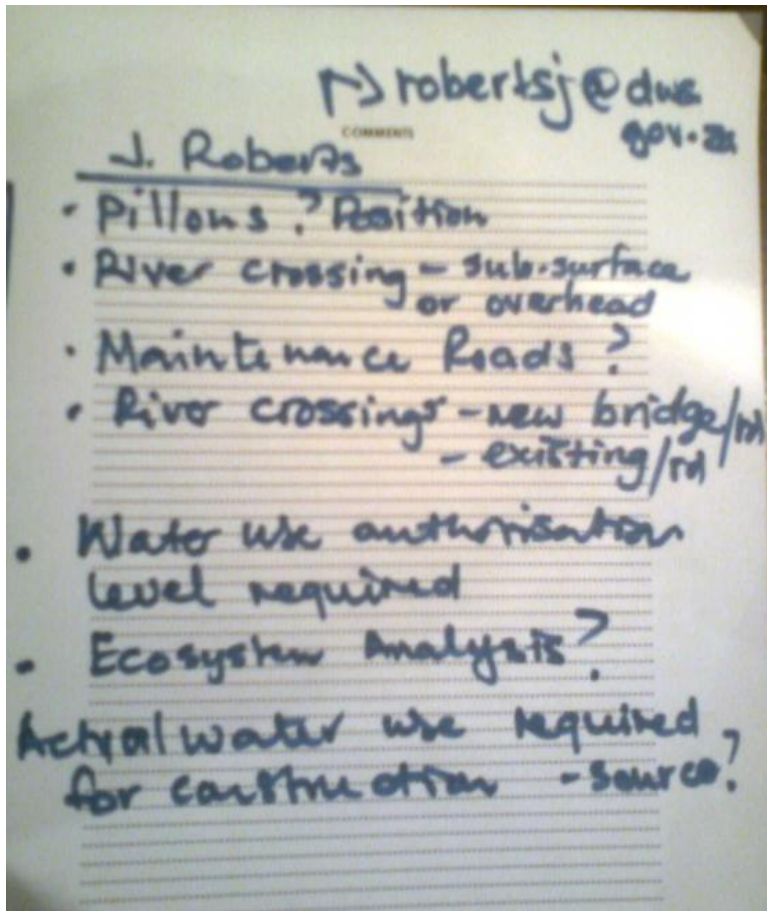 robertsj@dws.
gov.za
COMMENTS
J. Roberts
• Pillons ? Position
• River crossing - sub-surface
or overhead
• Maintenance Roads ?
• River crossings - new bridge/rd
- existing/rd
• Water use authorisation
level required
• Ecosystem Analysis ?
Actual water use required
for construction - source ?